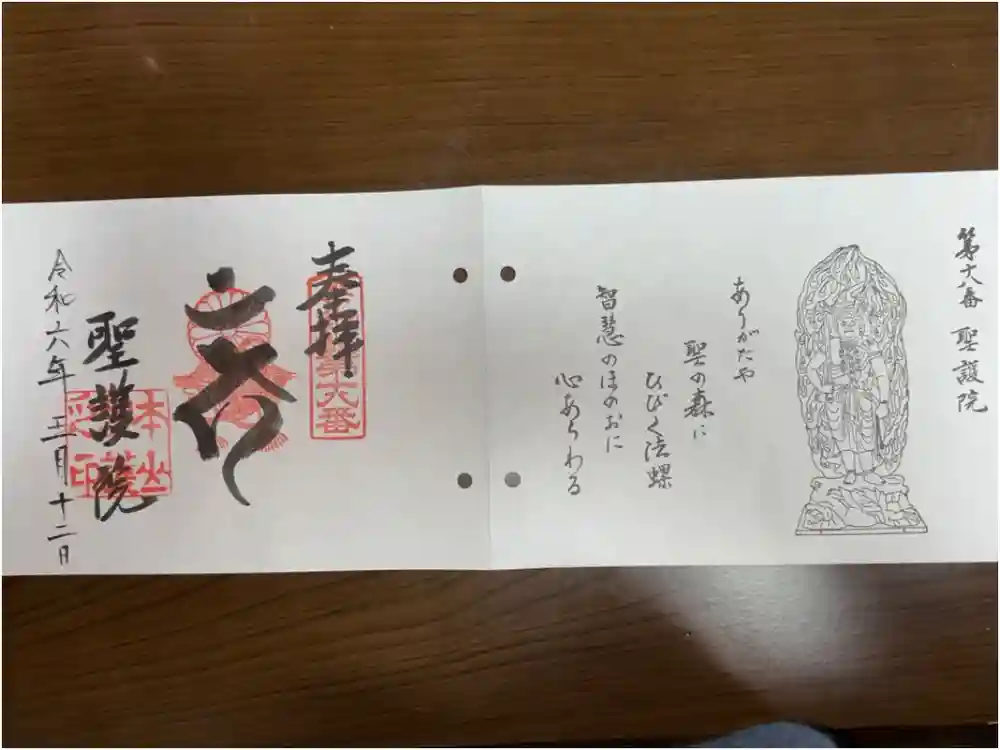 第十八番 聖護院
ありがたや
聖の森に
ひびく法螺
智慧のほのおに
心あらわる
奉拝
第十八番
聖護院
本山
令和六年 三月十二日